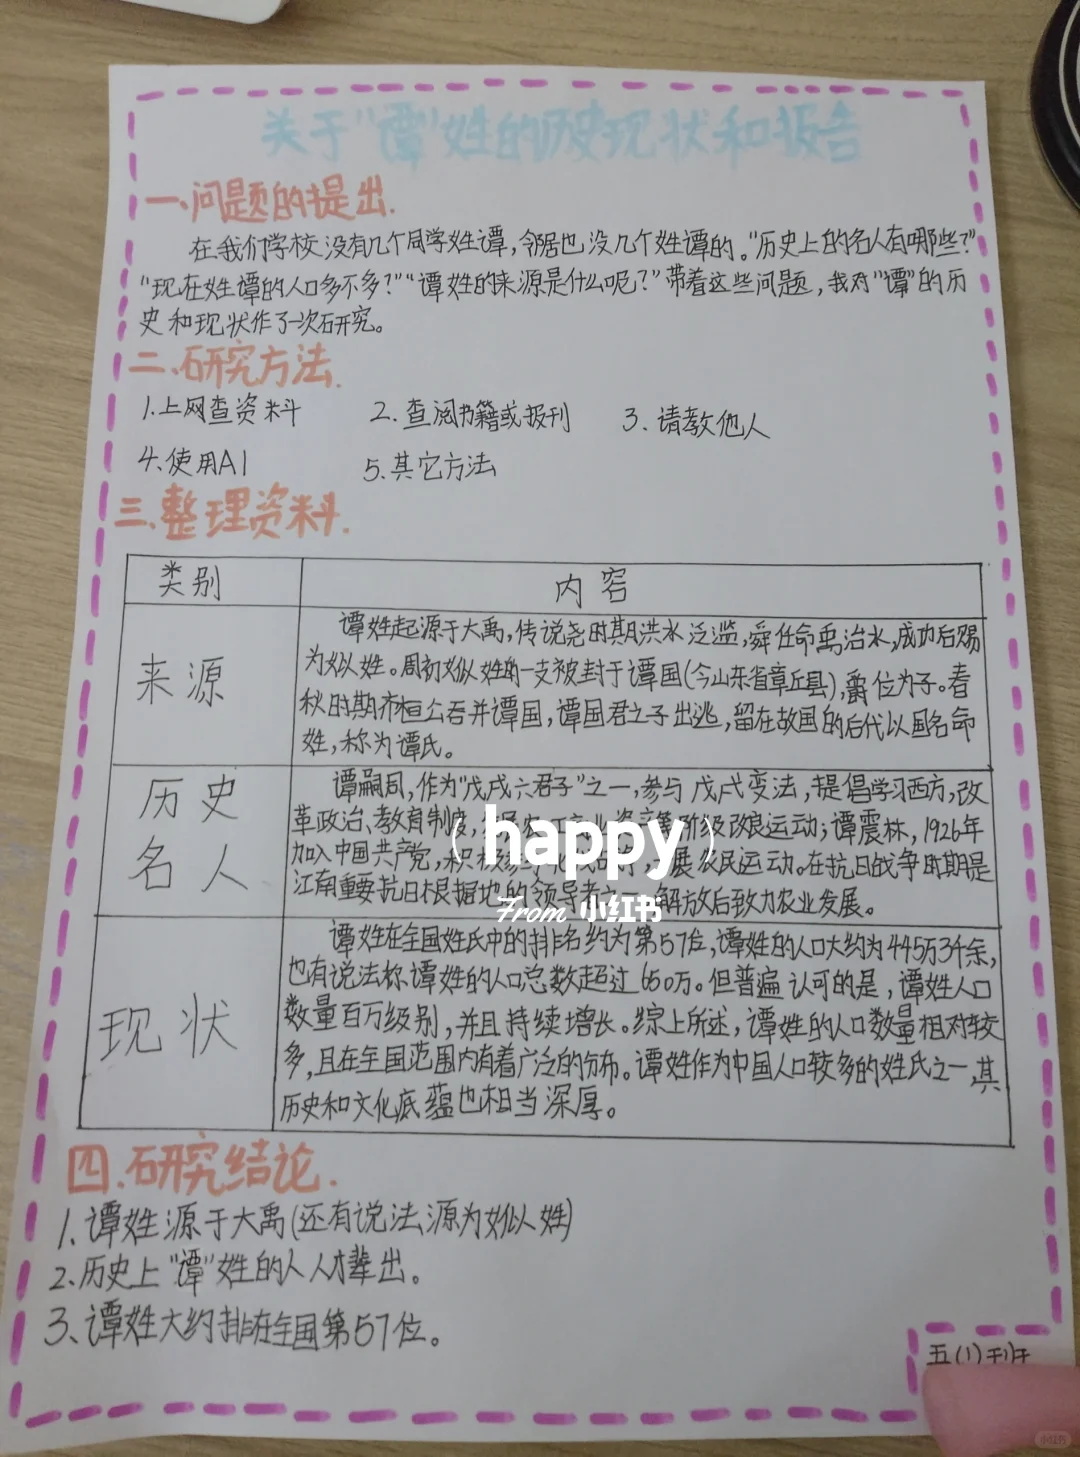 关于"谭"姓的历史现状和报告
一、问题的提出.
在我们学校没有几个同学姓谭，邻居也没几个姓谭的。"历史上的名人有哪些?"
"现在姓谭的人口多不多?""谭姓的来源是什么呢?"带着这些问题，我对"谭"的历
史和现状作了一次研究。
二、研究方法.
1.上网查资料 2.查阅书籍或报刊 3.请教他人
4.使用AI 5.其它方法
三、整理资料.
类别 内容
来源
谭姓起源于大禹，传说尧时期洪水泛滥，舜任命禹治水，成功后赐
为姒姓。周初姒姓的一支被封于谭国(今山东省章丘县)，爵位为子。春
秋时期齐桓公吞并谭国，谭国君之子出逃，留在故国的后代以国名命
姓，称为谭氏。
历史
名人
谭嗣同，作为"戊戌六君子"之一，参与戊戌变法，提倡学习西方，改
革政治、教育制度，资产阶级改良运动；谭震林，1926年
加入中国共产党，积极参与，展农民运动。在抗日战争时期是
江南重要抗日根据地的领导者之一，解放后致力农业发展。
现状
谭姓在全国姓氏中的排名约为第57位，谭姓的人口大约为445万3千余，
也有说法称谭姓的人口总数超过650万。但普遍认可的是，谭姓人口
数量百万级别，并且持续增长。综上所述，谭姓的人口数量相对较
多，且在全国范围内有着广泛的分布。谭姓作为中国人口较多的姓氏之一，其
历史和文化底蕴也相当深厚。
四.研究结论.
1.谭姓源于大禹(还有说法源为姒姓)
2.历史上"谭"姓的人人才辈出。
3、谭姓大约排在全国第57位。
五(1)班
(happy)
From 小红书
小红书